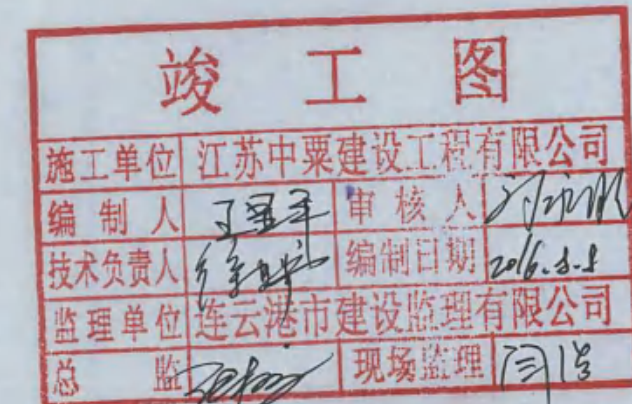 竣工图
施工单位 江苏中粟建设工程有限公司
编制人 审核人
技术负责人 编制日期
监理单位 连云港市建设监理有限公司
总监 现场监理